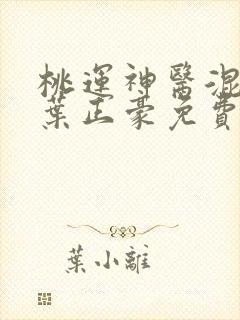 桃運神醫混
葉正豪免費
葉小離